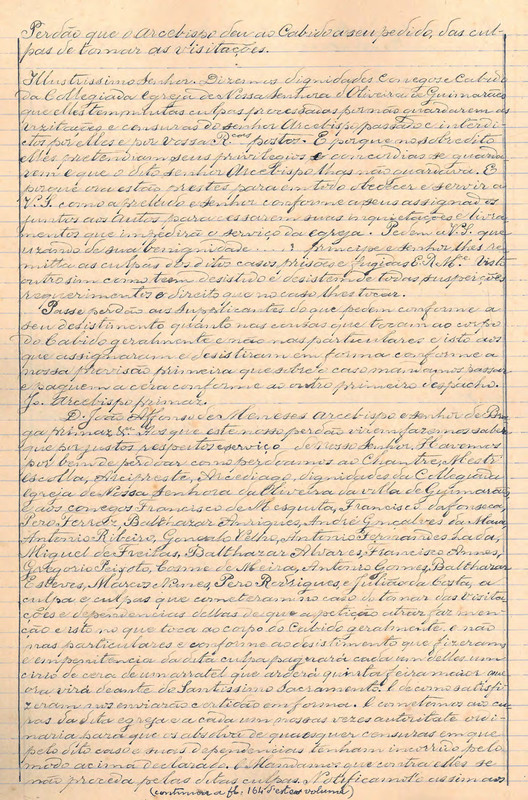 Perdão que o Arcebispo deu ao Cabido a seu pedido, das cul-
pas de tomar as visitações.
Illustrissimo Senhor. Dizemos dignidades Conegos e Cabido
da Collegiada Egreja de Nossa Senhora d'Oliveira de Guimarães
que elles tem muitas culpas processadas por não guardarem as
vizitações e censuras do senhor Arcebispo passado e interdi-
ctos por elles e por vossa R.ma postos. E porque no sobredito
elles pretendiam seus privilegios e concordias se guarda-
rem e que o dito senhor Arcebispo lhas não guardava. E
porque ora estão prestes para em todo obedecer e servir a
V.S. como a prelado e senhor conforme a seus assignados
juntos aos autos para cessarem suas inquietações e livra-
mentos que impedirão o serviço da egreja. Pedem a V.S. que
uzando de sua benignidade ..... principe e senhor lhes re-
mitta as culpas dos ditos casos prisões e fugidas E.R.M.ce Visto
outro sim como tem desistido e desistem de todas suspeições
requerimentos e direito que no caso lhes tocar.
Passe perdão aos supplicantes do que pedem conforme a
seu desistimento quanto nas cousas que tocam ao corpo
do Cabido geralmente e não nas particulares e isto aos
que assignaram e desistiram em forma conforme a
nossa provisão primeira que sobre o caso mandamos passar
e paguem a cera conforme ao outro primeiro despacho.
Jo. Arcebispo primaz.
D. João Affonso de Meneses Arcebispo e senhor de Bra-
ga primaz &a. Aos que este nosso perdão virem fazemos saber
que por justos respeitos e serviço de nosso Senhor, Havemos
por bem de perdoar como perdoamos ao Chantre, Mestr'
Escolla, Arcipreste, Arcediago, dignidades da Collegiada
Egreja de Nossa Senhora da Oliveira da villa de Guimarães,
e aos conegos Francisco de Mesquita, Francisco da Fonseca,
Pero Ferraz, Balthazar Anriques, André Gonçalves da Maia,
Antonio Ribeiro, Gonçalo Velho, Antonio Fernandes
Miguel de Freitas, Balthazar Alvares, Francisco Annes,
Gregorio Peixoto, Cosme de Meira, Antonio Gomes, Balthazar
Esteves, Marcos Nunes, Pero Rodrigues e Julião da Costa, a
culpa e culpas que cometeram no caso de tomar das visita-
ções e dependencias dellas de que a petição atraz faz men-
ção e isto no que toca ao corpo do Cabido geralmente e não
nas particulares e conforme ao desistimento que fizeram
e em penitencia da dita culpa pagará cada um delles um
cirio de cera de um arratel que arderá quinta feira maior que
ora virá deante do Santissimo Sacramento. E de como satisfi-
zeram nos enviarão certidão em forma. E cometemos ao cu-
ras da dita egreja e a cada um nossas vezes autoritate ordi-
naria para que os absolva de quaesquer censuras em que
pelo dito caso e suas dependencias tenham incorrido pelo
modo acima declarado. E Mandamos que contra elles se
não proceda pelas ditas culpas. Notificamol-o assim aos
(continua a fl. 164 d'este volume)